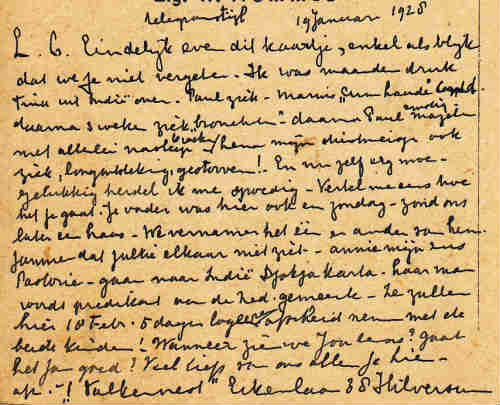 19 Januari 1928
L. C. Eindelijk even dit kaartje, enkel als blijk
dat we je niet vergeten. - Ik was maanden druk
Trui uit Indië over. Paul ziek - Marius
daarna 3 weken ziek, bronchitis - daarna Paul mazelen
met allerlei nasleep - mijn ook
ziek, longontsteking, gestorven! - En nu zelf erg moe -
gelukkig herstel ik me spoedig - Vertel me eens hoe
het je gaat. Je vader was hier ook een Zondag - zond ons
later een haas - We vernamen het één en ander van hem.
Jammer dat jullie elkaar niet ziet - Annie mijn zus
gaan naar Indië Djokjakarta - haar man
wordt predikant van de Ned. gemeente - Ze zullen
hier 18 Febr. 5 dagen logeeren, afscheid nemen met de
beide kinderen! Wanneer zien we Jou eens? Gaat
het Jou goed? Veel liefs van ons allen je
"Valkennest" Eikenlaan 38 Hilversum